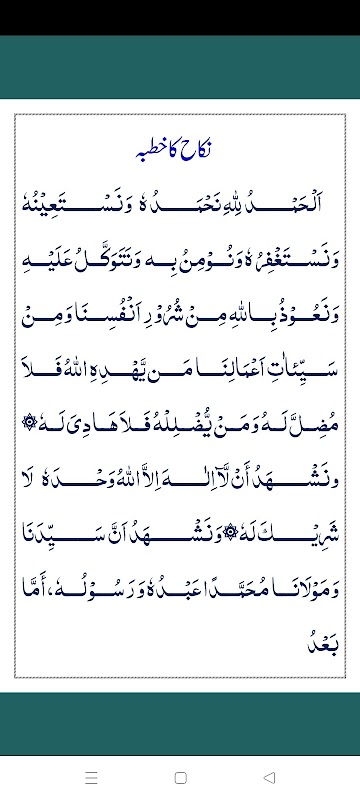 نکاح کا خطبہ
اَلْحَمْدُ لِلّٰهِ نَحْمَدُهٗ وَنَسْتَعِیْنُهٗ
وَنَسْتَغْفِرُهٗ وَنُؤْمِنُ بِهٖ وَنَتَوَكَّلُ عَلَیْهِ
وَنَعُوْذُ بِاللّٰهِ مِنْ شُرُوْرِ اَنْفُسِنَا وَمِنْ
سَیِّئَاتِ اَعْمَالِنَا مَن یَّهْدِهِ اللّٰهُ فَلَا
مُضِلَّ لَهٗ وَمَنْ یُّضْلِلْهُ فَلَا هَادِیَ لَهٗ ۞
ونَشْهَدُ أَنْ لَّآ اِلٰهَ اِلَّا اللّٰهُ وَحْدَهٗ لَا
شَرِیْكَ لَهٗ ۞ وَنَشْهَدُ اَنَّ سَیِّدَنَا
وَمَوْلَانَا مُحَمَّدًا عَبْدُهٗ وَرَسُوْلُهٗ، أَمَّا
بَعْدُ